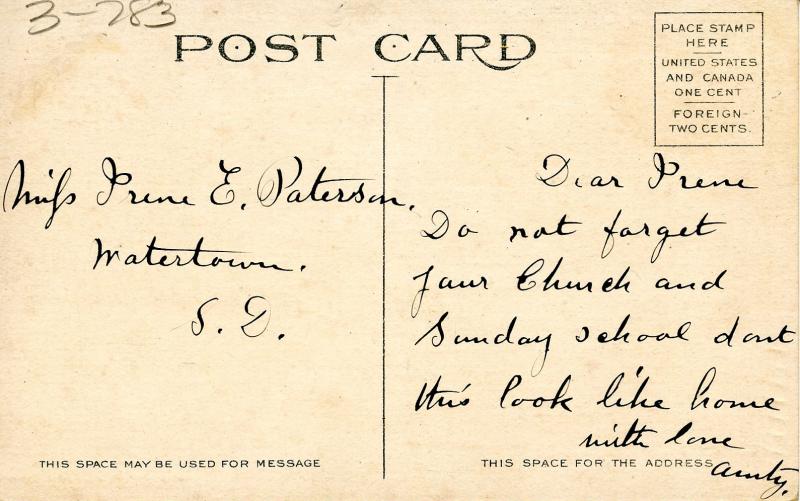 3-783
POST CARD
PLACE STAMP
HERE
UNITED STATES
AND CANADA
ONE CENT
FOREIGN-
TWO CENTS.
Miss Irene E. Paterson.
Watertown.
S. D.
THIS SPACE MAY BE USED FOR MESSAGE
Dear Irene
Do not forget
your Church and
Sunday school dont
this look like home
with love
aunty.
THIS SPACE FOR THE ADDRESS